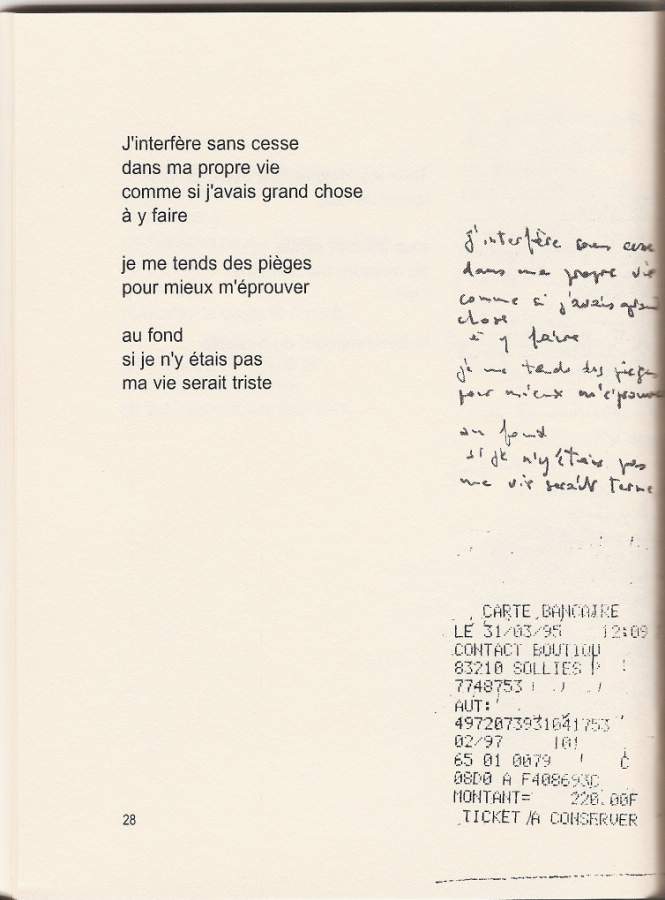 J'interfère sans cesse
dans ma propre vie
comme si j'avais grand chose
à y faire
je me tends des pièges
pour mieux m'éprouver
au fond
si je n'y étais pas
ma vie serait triste
28
j'interfère sans cesse
dans ma propre vie
comme si j'avais grand
chose
à y faire
je me tends des pièges
pour mieux m'éprouver
au fond
si je n'y étais pas
ma vie serait terne
CARTE BANCAIRE
LE 31/03/95 12:09
CONTACT BOUTIQU
83210 SOLLIES P
7748753
AUT:
4972073931041753
02/97 101
65 01 0079 C
08D0 A F408693C
MONTANT= 220.00F
TICKET A CONSERVER